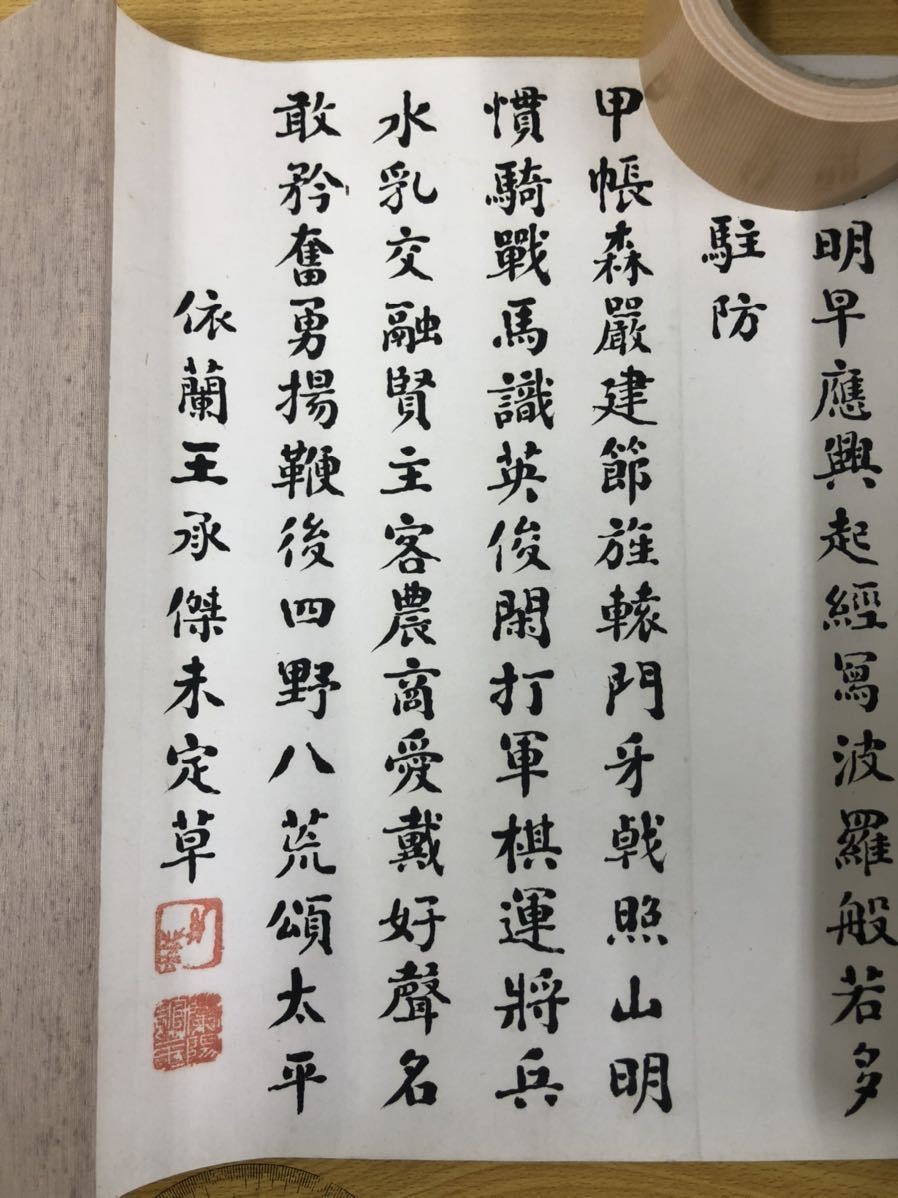 明早應興起經寫波羅般若多
駐防
甲帳森嚴建節旌轅門牙戟照山明
慣騎戰馬識英俊閑打軍棋運將兵
水乳交融賢主客農商愛戴好聲名
敢矜奮勇揚鞭後四野八荒頌太平
依蘭王承傑未定草